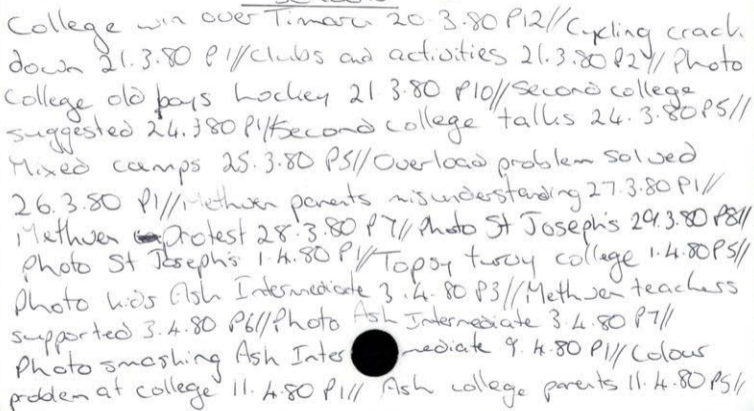 College win over Timaru 20.3.80 P12//Cycling crack
down 21.3.80 P1//Clubs and activities 21.3.80 P2//Photo
College old boys hockey 21.3.80 P10//Second college
suggested 24.3.80 P1//Second college talks 24.3.80 P5//
Mixed camps 25.3.80 P5//Overload problem solved
26.3.80 P1//Methven parents misunderstanding 27.3.80 P1//
Methven Protest 28.3.80 P7//Photo St Joseph's 29.3.80 P8//
Photo St Joseph's 1.4.80 P1//Topsy turvy college 1.4.80 P5//
Photo kids Ash Intermediate 3.4.80 P3//Methven teachers
supported 3.4.80 P6//Photo Ash Intermediate 3.4.80 P7//
Photo smashing Ash Intermediate 9.4.80 P1//Colour
problem at college 11.4.80 P1//Ash college parents 11.4.80 P5//